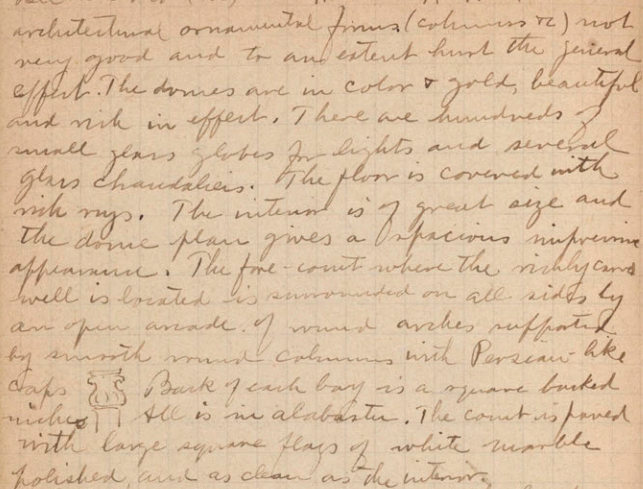 architectural ornamental forms (columns &c) not
very good and to an extent hurt the general
effect. The domes are in color & gold, beautiful
and rich in effect. There are hundreds of
small glass globes for lights and several
glass chandaliers. The floor is covered with
rich rugs. The interior is of great size and
the dome plan gives a spacious impressive
appearance. The fore-court where the richly carved
well is located is surrounded on all sides by
an open arcade of round arches supported
by smooth round columns with Persian-like
caps Back of each bay is a square backed
niche All is in alabaster. The court is paved
with large square flags of white marble
polished, and as clean as the interior.